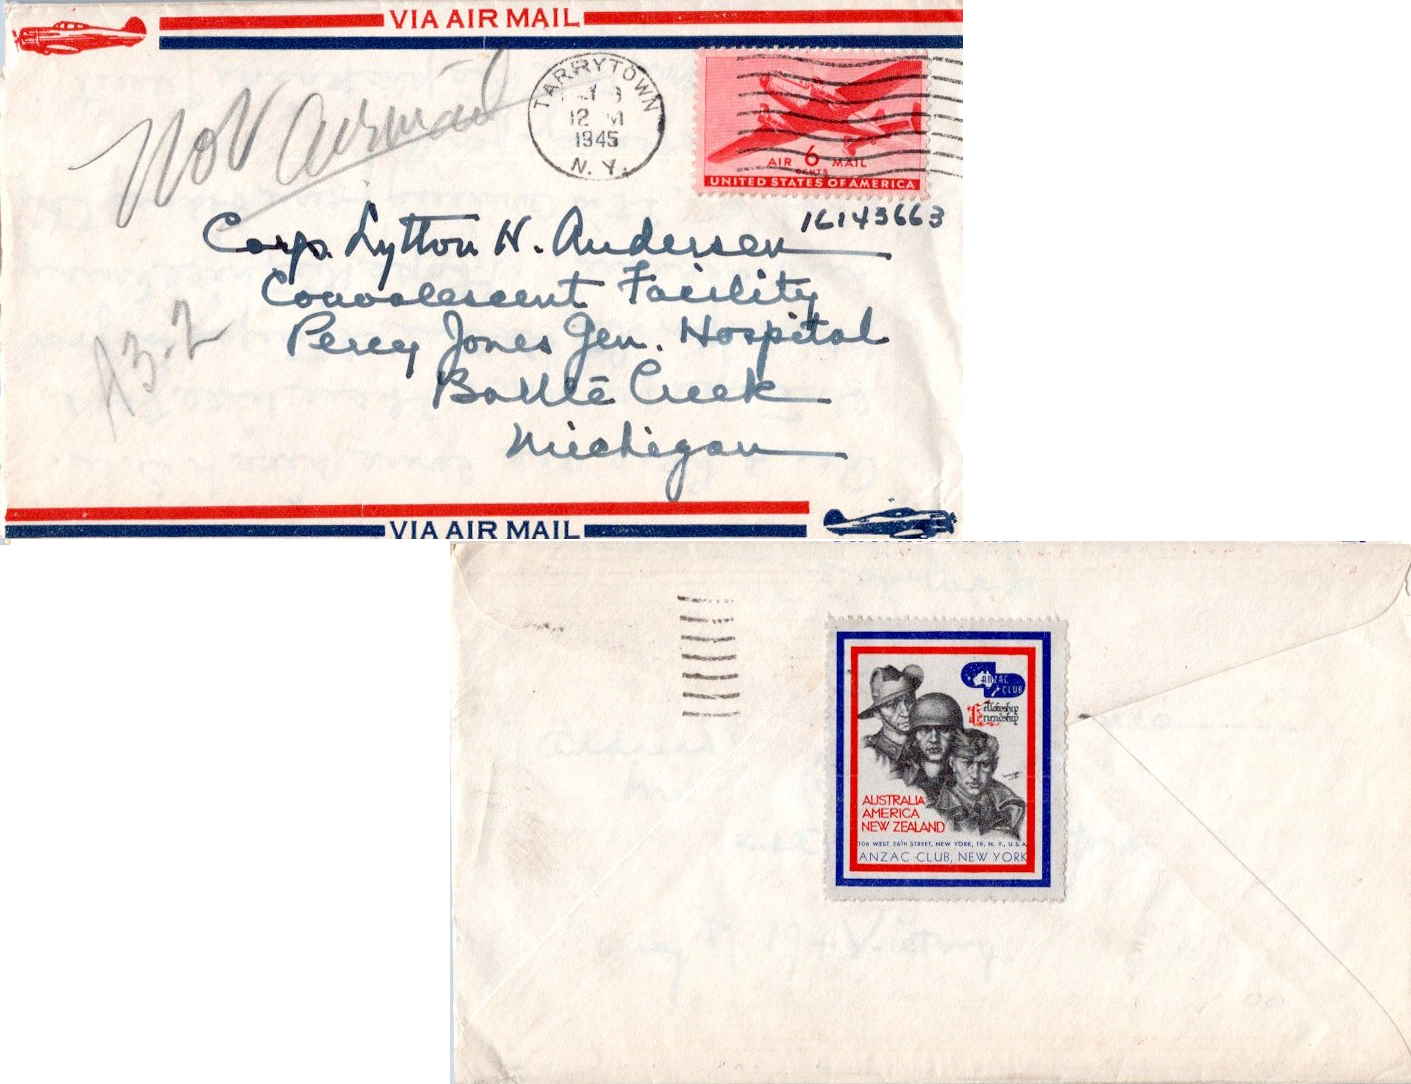 VIA AIR MAIL
Not Airmail
TARRYTOWN
12 M
1945
N. Y.
AIR 6 MAIL
CENTS
UNITED STATES OF AMERICA
16143663
Corp. Lytton H. Andersen
Convalescent Facility
Percy Jones Gen. Hospital
Battle Creek
Michigan
A3-2
VIA AIR MAIL
ANZAC
CLUB
Fellowship
Friendship
AUSTRALIA
AMERICA
NEW ZEALAND
106 WEST 56TH STREET, NEW YORK, 19, N. Y., U.S.A.
ANZAC CLUB, NEW YORK